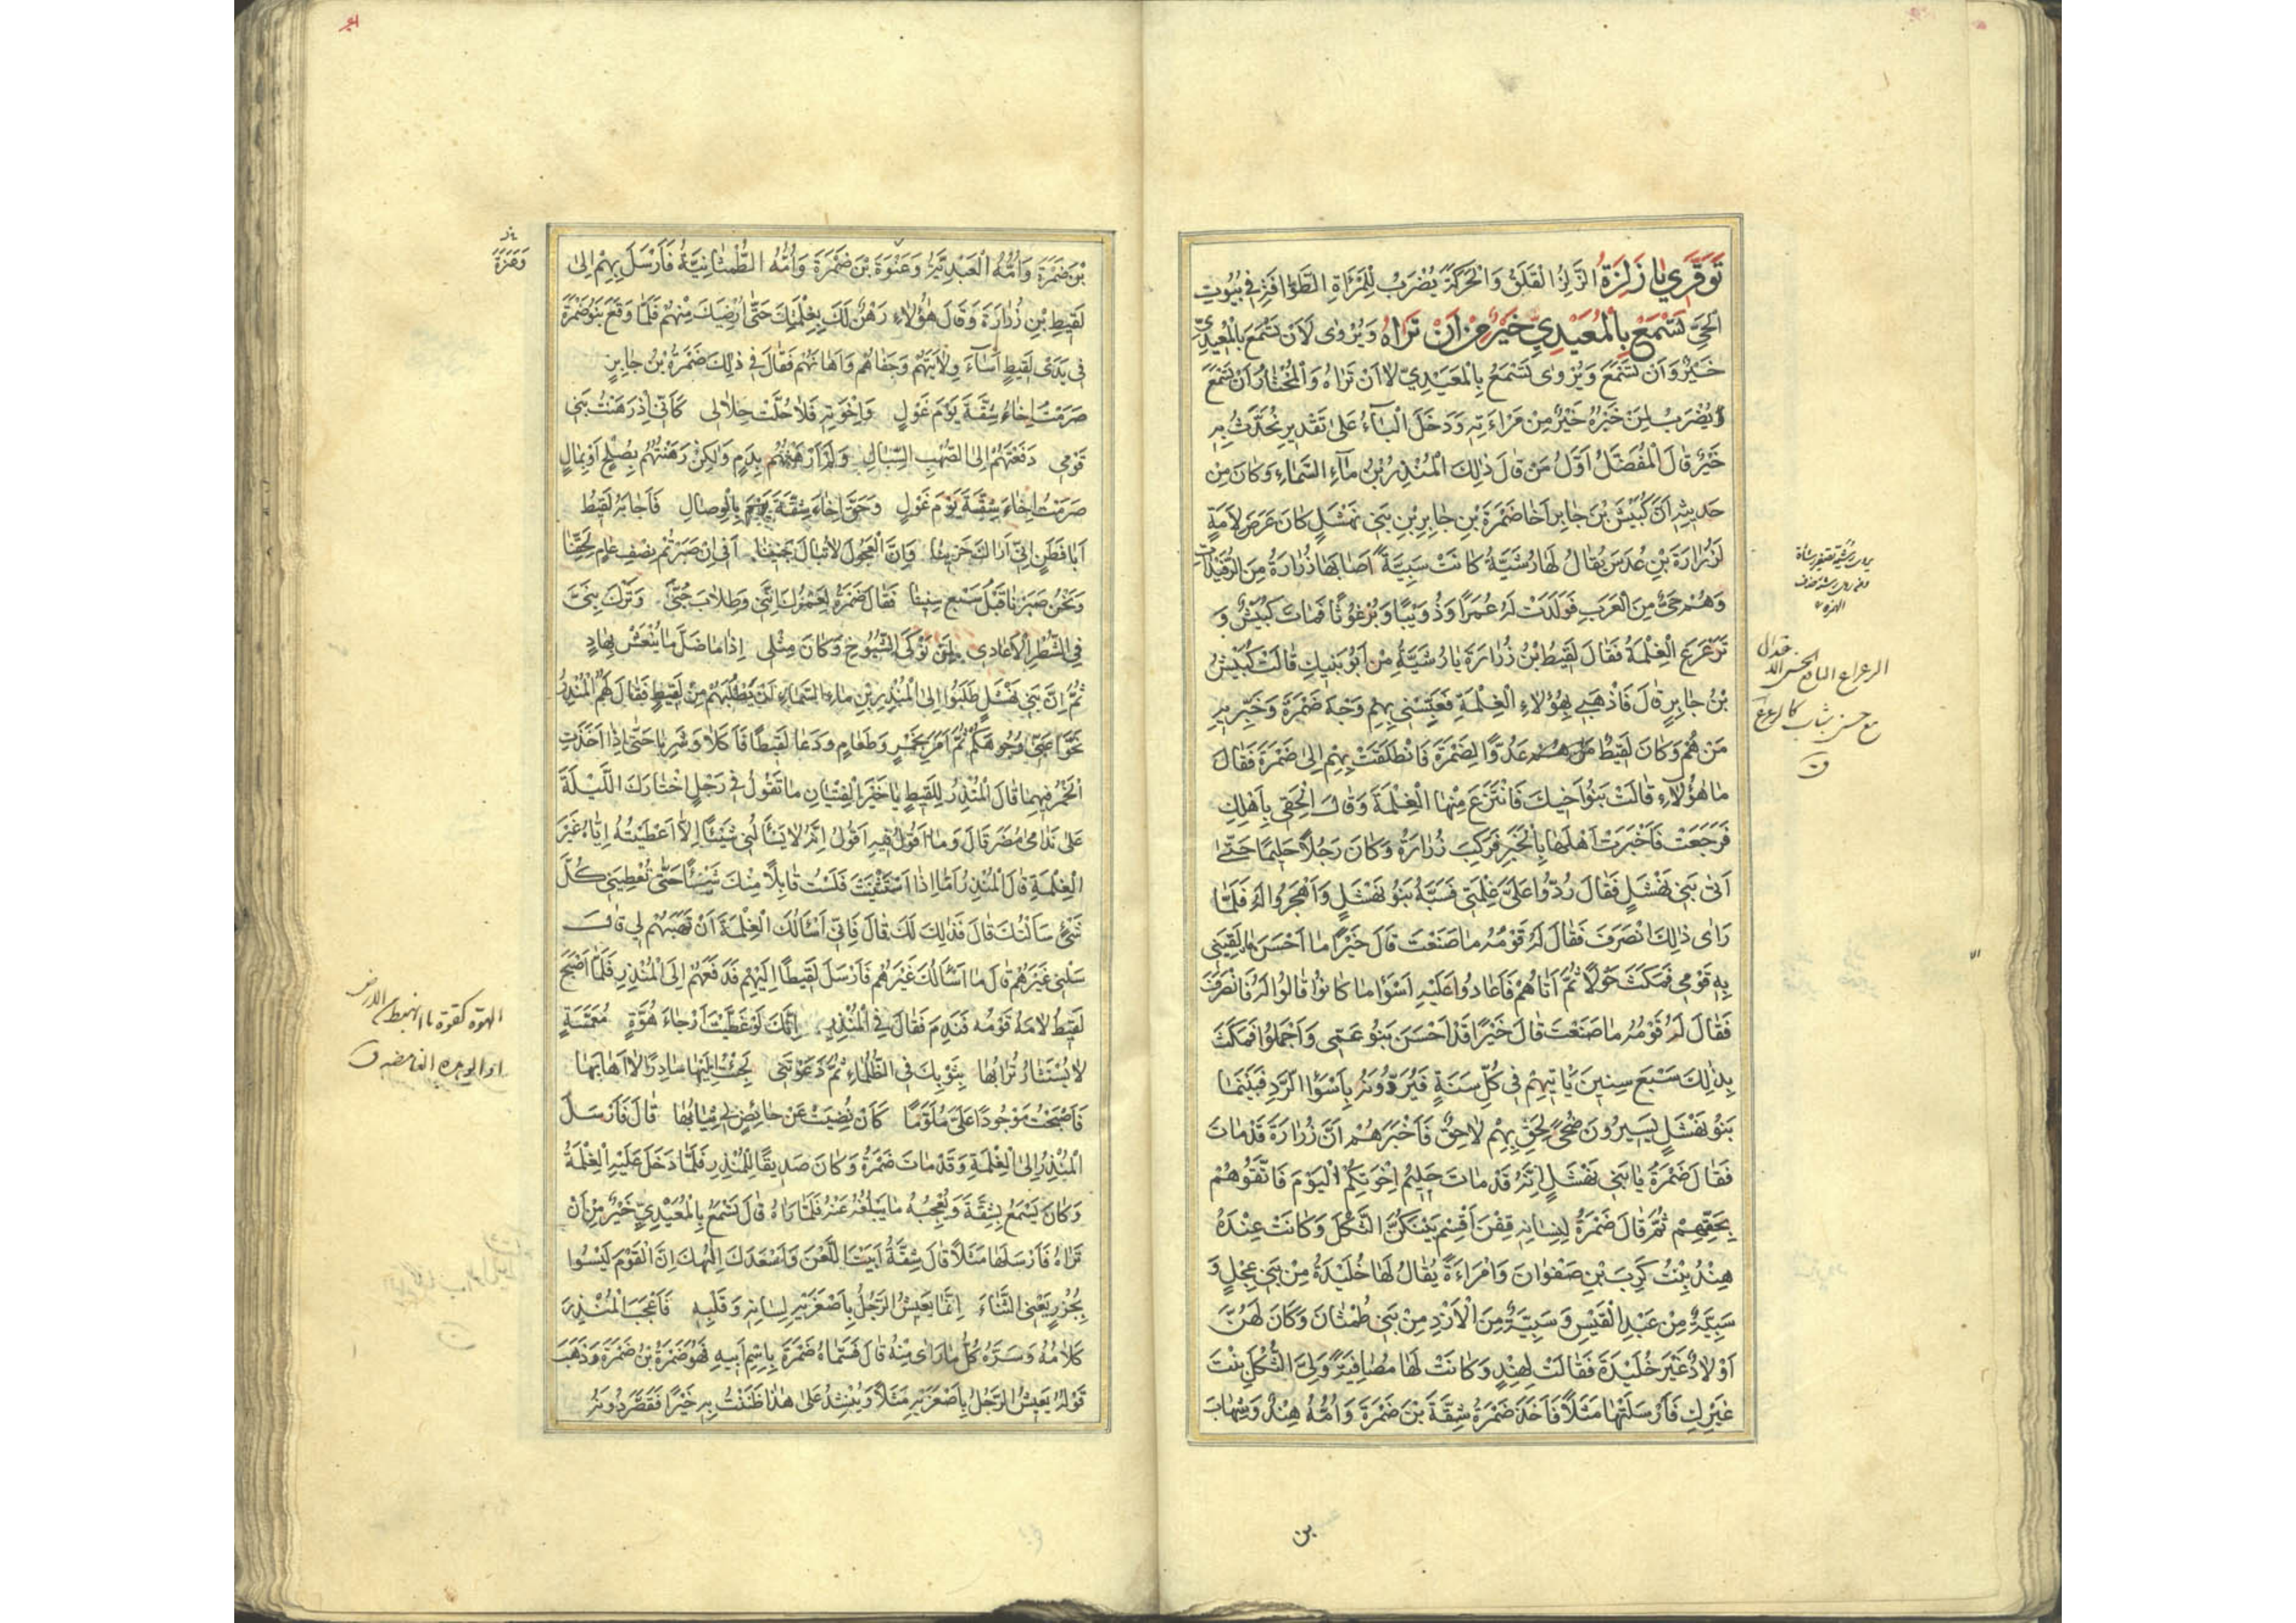 تَوَقَّرِي يَا زَلِزَةُ الزَّلِزُ الْقَلَقُ وَالْحَرَكَةُ يُضْرَبُ لِلْمَرْأَةِ الطَّوَّافَةِ فِي بُيُوتِ
الْحَيِّ تَسْمَعُ بِالْمُعَيْدِيِّ خَيْرٌ مِنْ اَنْ تَرَاهُ وَيُرْوٰى لَاَنْ تَسْمَعَ بِالْمُعَيْدِيِّ
خَيْرٌ وَاَنْ تَسْمَعَ وَيُرْوٰى تَسْمَعُ بِالْمُعَيْدِيِّ لَا اَنْ تَرَاهُ وَالْمُخْتَارُ اَنْ تَسْمَعَ
يُضْرَبُ لِمَنْ خَبَرُهُ خَيْرٌ مِنْ مَرْاٰتِهِ وَدَخَلَ الْبَاءُ عَلٰى تَقْدِيرِ تُحَدَّثُ بِهِ
خَيْرٌ قَالَ الْمُفَضَّلُ اَوَّلُ مَنْ قَالَ ذٰلِكَ الْمُنْذِرُ بْنُ مَاءِ السَّمَاءِ وَكَانَ مِنْ
حَدِيثِهِ اَنَّ كُبَيْشَ بْنَ جَابِرٍ اَخَا ضَمْرَةَ بْنِ جَابِرٍ مِنْ بَنِي نَهْشَلٍ كَانَ عَرَضَ لِاَمَةٍ
لِزُرَارَةَ بْنِ عُدَسَ يُقَالُ لَهَا رُشَيَّةُ كَانَتْ سَبِيَّةً اَصَابَهَا زُرَارَةُ مِنَ الرُّفَيْدَاتِ
وَهُمْ حَيٌّ مِنَ الْعَرَبِ فَوَلَدَتْ لَهُ عَمْرًا وَذُؤَيْبًا وَبُرْغُوثًا فَمَاتَ كُبَيْشٌ وَ
تَرَعْرَعَ الْغِلْمَةُ فَقَالَ لَقِيطُ بْنُ زُرَارَةَ يَا رُشَيَّةُ مَنْ اَبُو بَنِيكِ قَالَتْ كُبَيْشُ
بْنُ جَابِرٍ قَالَ فَاذْهَبِي بِهٰؤُلَاءِ الْغِلْمَةِ فَغَبِّسِي بِهِمْ وَجْهَ ضَمْرَةَ وَخَبِّرِيهِ
مَنْ هُمْ وَكَانَ لَقِيطٌ عَدُوًّا لِضَمْرَةَ فَانْطَلَقَتْ بِهِمْ اِلٰى ضَمْرَةَ فَقَالَ
مَا هٰؤُلَاءِ قَالَتْ بَنُو اَخِيكَ فَانْتَزَعَ مِنْهَا الْغِلْمَةَ وَقَالَ الْحَقِي بِاَهْلِكِ
فَرَجَعَتْ فَاَخْبَرَتْ اَهْلَهَا بِالْخَبَرِ فَرَكِبَ زُرَارَةُ وَكَانَ رَجُلًا حَلِيمًا حَتّٰى
اَتٰى بَنِي نَهْشَلٍ فَقَالَ رُدُّوا عَلَيَّ غِلْمَتِي فَسَبَّهُ بَنُو نَهْشَلٍ وَاَهْجَرُوا لَهُ فَلَمَّا
رَاٰى ذٰلِكَ انْصَرَفَ فَقَالَ لَهُ قَوْمُهُ مَا صَنَعْتَ قَالَ خَيْرًا مَا اَحْسَنَ مَا لَقِيَنِي
بِهِ قَوْمِي فَمَكَثَ حَوْلًا ثُمَّ اَتَاهُمْ فَاَعَادُوا عَلَيْهِ اَسْوَاَ مَا كَانُوا قَالُوا لَهُ فَانْصَرَفَ
فَقَالَ لَهُ قَوْمُهُ مَا صَنَعْتَ قَالَ خَيْرًا قَدْ اَحْسَنَ بَنُو عَمِّي وَاَجْمَلُوا فَمَكَثَ
بِذٰلِكَ سَبْعَ سِنِينَ يَاْتِيهِمْ فِي كُلِّ سَنَةٍ فَيَرُدُّونَهُ بِاَسْوَاِ الرَّدِّ فَبَيْنَمَا
بَنُو نَهْشَلٍ يَسِيرُونَ ضُحًى لَحِقَ بِهِمْ لَاحِقٌ فَاَخْبَرَهُمْ اَنَّ زُرَارَةَ قَدْ مَاتَ
فَقَالَ ضَمْرَةُ يَا بَنِي نَهْشَلٍ اِنَّهُ قَدْ مَاتَ حَلِيمُ اِخْوَتِكُمُ الْيَوْمَ فَاتَّقُوهُمْ
بِحَقِّهِمْ ثُمَّ قَالَ ضَمْرَةُ لِنِسَائِهِ قِفْنَ اَقْسِمْ بَيْنَكُنَّ الثُّكْلَ وَكَانَتْ عِنْدَهُ
هِنْدُ بِنْتُ كَرِبَ بْنِ صَفْوَانَ وَامْرَاَةٌ يُقَالُ لَهَا خُلَيْدَةُ مِنْ بَنِي عِجْلٍ وَ
سَبِيَّةٌ مِنْ عَبْدِ الْقَيْسِ وَسَبِيَّةٌ مِنَ الْاَزْدِ مِنْ بَنِي طَمَثَانَ وَكَانَ لَهُنَّ
اَوْلَادٌ غَيْرَ خُلَيْدَةَ فَقَالَتْ لِهِنْدٍ وَكَانَتْ لَهَا مُصَافِيَةً وَلِيَ الثُّكْلَ بِنْتَ
غَيْرِكِ فَاَرْسَلَتْهَا مَثَلًا فَاَخَذَ ضَمْرَةُ شِقَّةَ بْنَ ضَمْرَةَ وَاُمُّهُ هِنْدٌ وَشِهَابَ
بن
بْنَ ضَمْرَةَ وَاُمُّهُ الْعَبْدِيَّةُ وَعَنْوَةَ بْنَ ضَمْرَةَ وَاُمُّهُ الطَّمَثَانِيَّةُ فَاَرْسَلَ بِهِمْ اِلٰى
لَقِيطِ بْنِ زُرَارَةَ وَقَالَ هٰؤُلَاءِ رَهْنٌ لَكَ بِغِلْمَتِكَ حَتّٰى اُرْضِيَكَ مِنْهُمْ فَلَمَّا وَقَعَ بَنُو ضَمْرَةَ
فِي يَدَيْ لَقِيطٍ اَسَاءَ وِلَايَتَهُمْ وَجَفَاهُمْ وَاَهَانَهُمْ فَقَالَ فِي ذٰلِكَ ضَمْرَةُ بْنُ جَابِرٍ
صَرَمْتُ اِخَاءَ شِقَّةَ يَوْمَ غَوْلٍ وَاِخْوَتِهِ فَلَا حَلَّتْ حِلَالِي كَاَنِّي اِذْ رَهَنْتُ بَنِيَّ
قَوْمِي دَفَعْتُهُمْ اِلَى الصُّهْبِ السِّبَالِ وَلَمْ اَرْهَنْهُمُ بِدَمٍ وَلٰكِنْ رَهَنْتُهُمُ بِصُلْحٍ اَوْ بِمَالٍ
صَرَمْتُ اِخَاءَ شِقَّةَ يَوْمَ غَوْلٍ وَحَقَّ اِخَاءُ شِقَّةَ بِالْوِصَالِ فَاَجَابَهُ لَقِيطٌ
اَبَا قَطَنٍ اِنِّي اَرَاكَ حَزِينًا وَاِنَّ الْعَجُولَ لَا تُبَالِ اَفِي اِنْ صَبَرْتُمْ نِصْفَ عَامٍ لِحَقِّنَا
وَنَحْنُ صَبَرْنَا قَبْلُ سَبْعَ سِنِينَا فَقَالَ ضَمْرَةُ لَعَمْرُكَ اِنَّنِي وَطِلَابَ حُبَّى وَتَرْكَ بَنِيَّ
فِي الشَّطْرِ الْاَعَادِي لَمِنْ نَوْكَى الشُّيُوخِ وَكَانَ مِثْلِي اِذَا مَا ضَلَّ مَا يُنْعَشْ بِهَادٍ
ثُمَّ اِنَّ بَنِي نَهْشَلٍ طَلَبُوا اِلَى الْمُنْذِرِ بْنِ مَاءِ السَّمَاءِ اَنْ يَطْلُبَهُمْ مِنْ لَقِيطٍ فَقَالَ لَهُمُ الْمُنْذِرُ
نَحُّوا عَنِّي وُجُوهَكُمْ ثُمَّ اَمَرَ بِخَمْرٍ وَطَعَامٍ وَدَعَا لَقِيطًا فَاَكَلَا وَشَرِبَا حَتّٰى اِذَا اَخَذَتِ
الْخَمْرُ فِيهِمَا قَالَ الْمُنْذِرُ لِلَقِيطٍ يَا خَيْرَ الْفِتْيَانِ مَا تَقُولُ فِي رَجُلٍ اخْتَارَكَ اللَّيْلَةَ
عَلٰى نَدَامٰى مُضَرَ قَالَ وَمَا اَقُولُ فِيهِ اَقُولُ اِنَّهُ لَا يَسْاَلُنِي شَيْئًا اِلَّا اَعْطَيْتُهُ اِيَّاهُ غَيْرَ
الْغِلْمَةِ قَالَ الْمُنْذِرُ اَمَّا اِذَا اسْتَثْنَيْتَ فَلَسْتُ قَابِلًا مِنْكَ شَيْئًا حَتّٰى تُعْطِيَنِي كُلَّ
شَيْءٍ سَاَلْتُكَ قَالَ فَذٰلِكَ لَكَ قَالَ فَاِنِّي اَسْاَلُكَ الْغِلْمَةَ اَنْ تَهَبَهُمْ لِي قَالَ
سَلْنِي غَيْرَهُمْ قَالَ مَا اَسْاَلُكَ غَيْرَهُمْ فَاَرْسَلَ لَقِيطٌ اِلَيْهِمْ فَدَفَعَهُمْ اِلَى الْمُنْذِرِ فَلَمَّا اَصْبَحَ
لَقِيطٌ لَامَهُ قَوْمُهُ فَنَدِمَ فَقَالَ فِي الْمُنْذِرِ اِنَّكَ لَوْ غَطَّيْتَ اَرْجَاءَ هُوَّةٍ مُغَمَّسَةٍ
لَا يُسْتَثَارُ تُرَابُهَا بِثَوْبِكَ فِي الظَّلْمَاءِ ثُمَّ دَعَوْتَنِي لَجِئْتُ اِلَيْهَا سَادِرًا لَا اَهَابُهَا
فَاَصْبَحْتُ مَوْجُودًا عَلَيَّ مُلَوَّمًا كَاَنْ نُضِيَتْ عَنْ حَائِضٍ لِي ثِيَابُهَا قَالَ فَاَرْسَلَ
الْمُنْذِرُ اِلَى الْغِلْمَةِ وَقَدْ مَاتَ ضَمْرَةُ وَكَانَ صَدِيقًا لِلْمُنْذِرِ فَلَمَّا دَخَلَ عَلَيْهِ الْغِلْمَةُ
وَكَانَ يَسْمَعُ بِشِقَّةَ وَيُعْجِبُهُ مَا يَبْلُغُهُ عَنْهُ فَلَمَّا رَاٰهُ قَالَ تَسْمَعُ بِالْمُعَيْدِيِّ خَيْرٌ مِنْ اَنْ
تَرَاهُ فَاَرْسَلَهَا مَثَلًا قَالَ شِقَّةُ اَبَيْتَ اللَّعْنَ وَاَسْعَدَكَ اِلٰهُكَ اِنَّ الْقَوْمَ لَيْسُوا
بِجُزُرٍ يَعْنِي الشَّاءَ اِنَّمَا يَعِيشُ الرَّجُلُ بِاَصْغَرَيْهِ لِسَانِهِ وَقَلْبِهِ فَاَعْجَبَ الْمُنْذِرَ
كَلَامُهُ وَسَرَّهُ كُلُّ مَا رَاٰى مِنْهُ قَالَ فَسَمَّاهُ ضَمْرَةَ بِاسْمِ اَبِيهِ فَهُوَ ضَمْرَةُ بْنُ ضَمْرَةَ وَذَهَبَ
قَوْلُهُ يَعِيشُ الرَّجُلُ بِاَصْغَرَيْهِ مَثَلًا وَيُنْشَدُ عَلٰى هٰذَا ظَنَنْتُ بِهِ خَيْرًا فَقَصَّرَ دُونَهُ